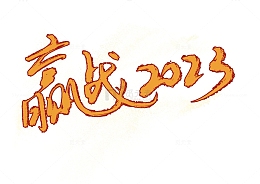 赢战2023